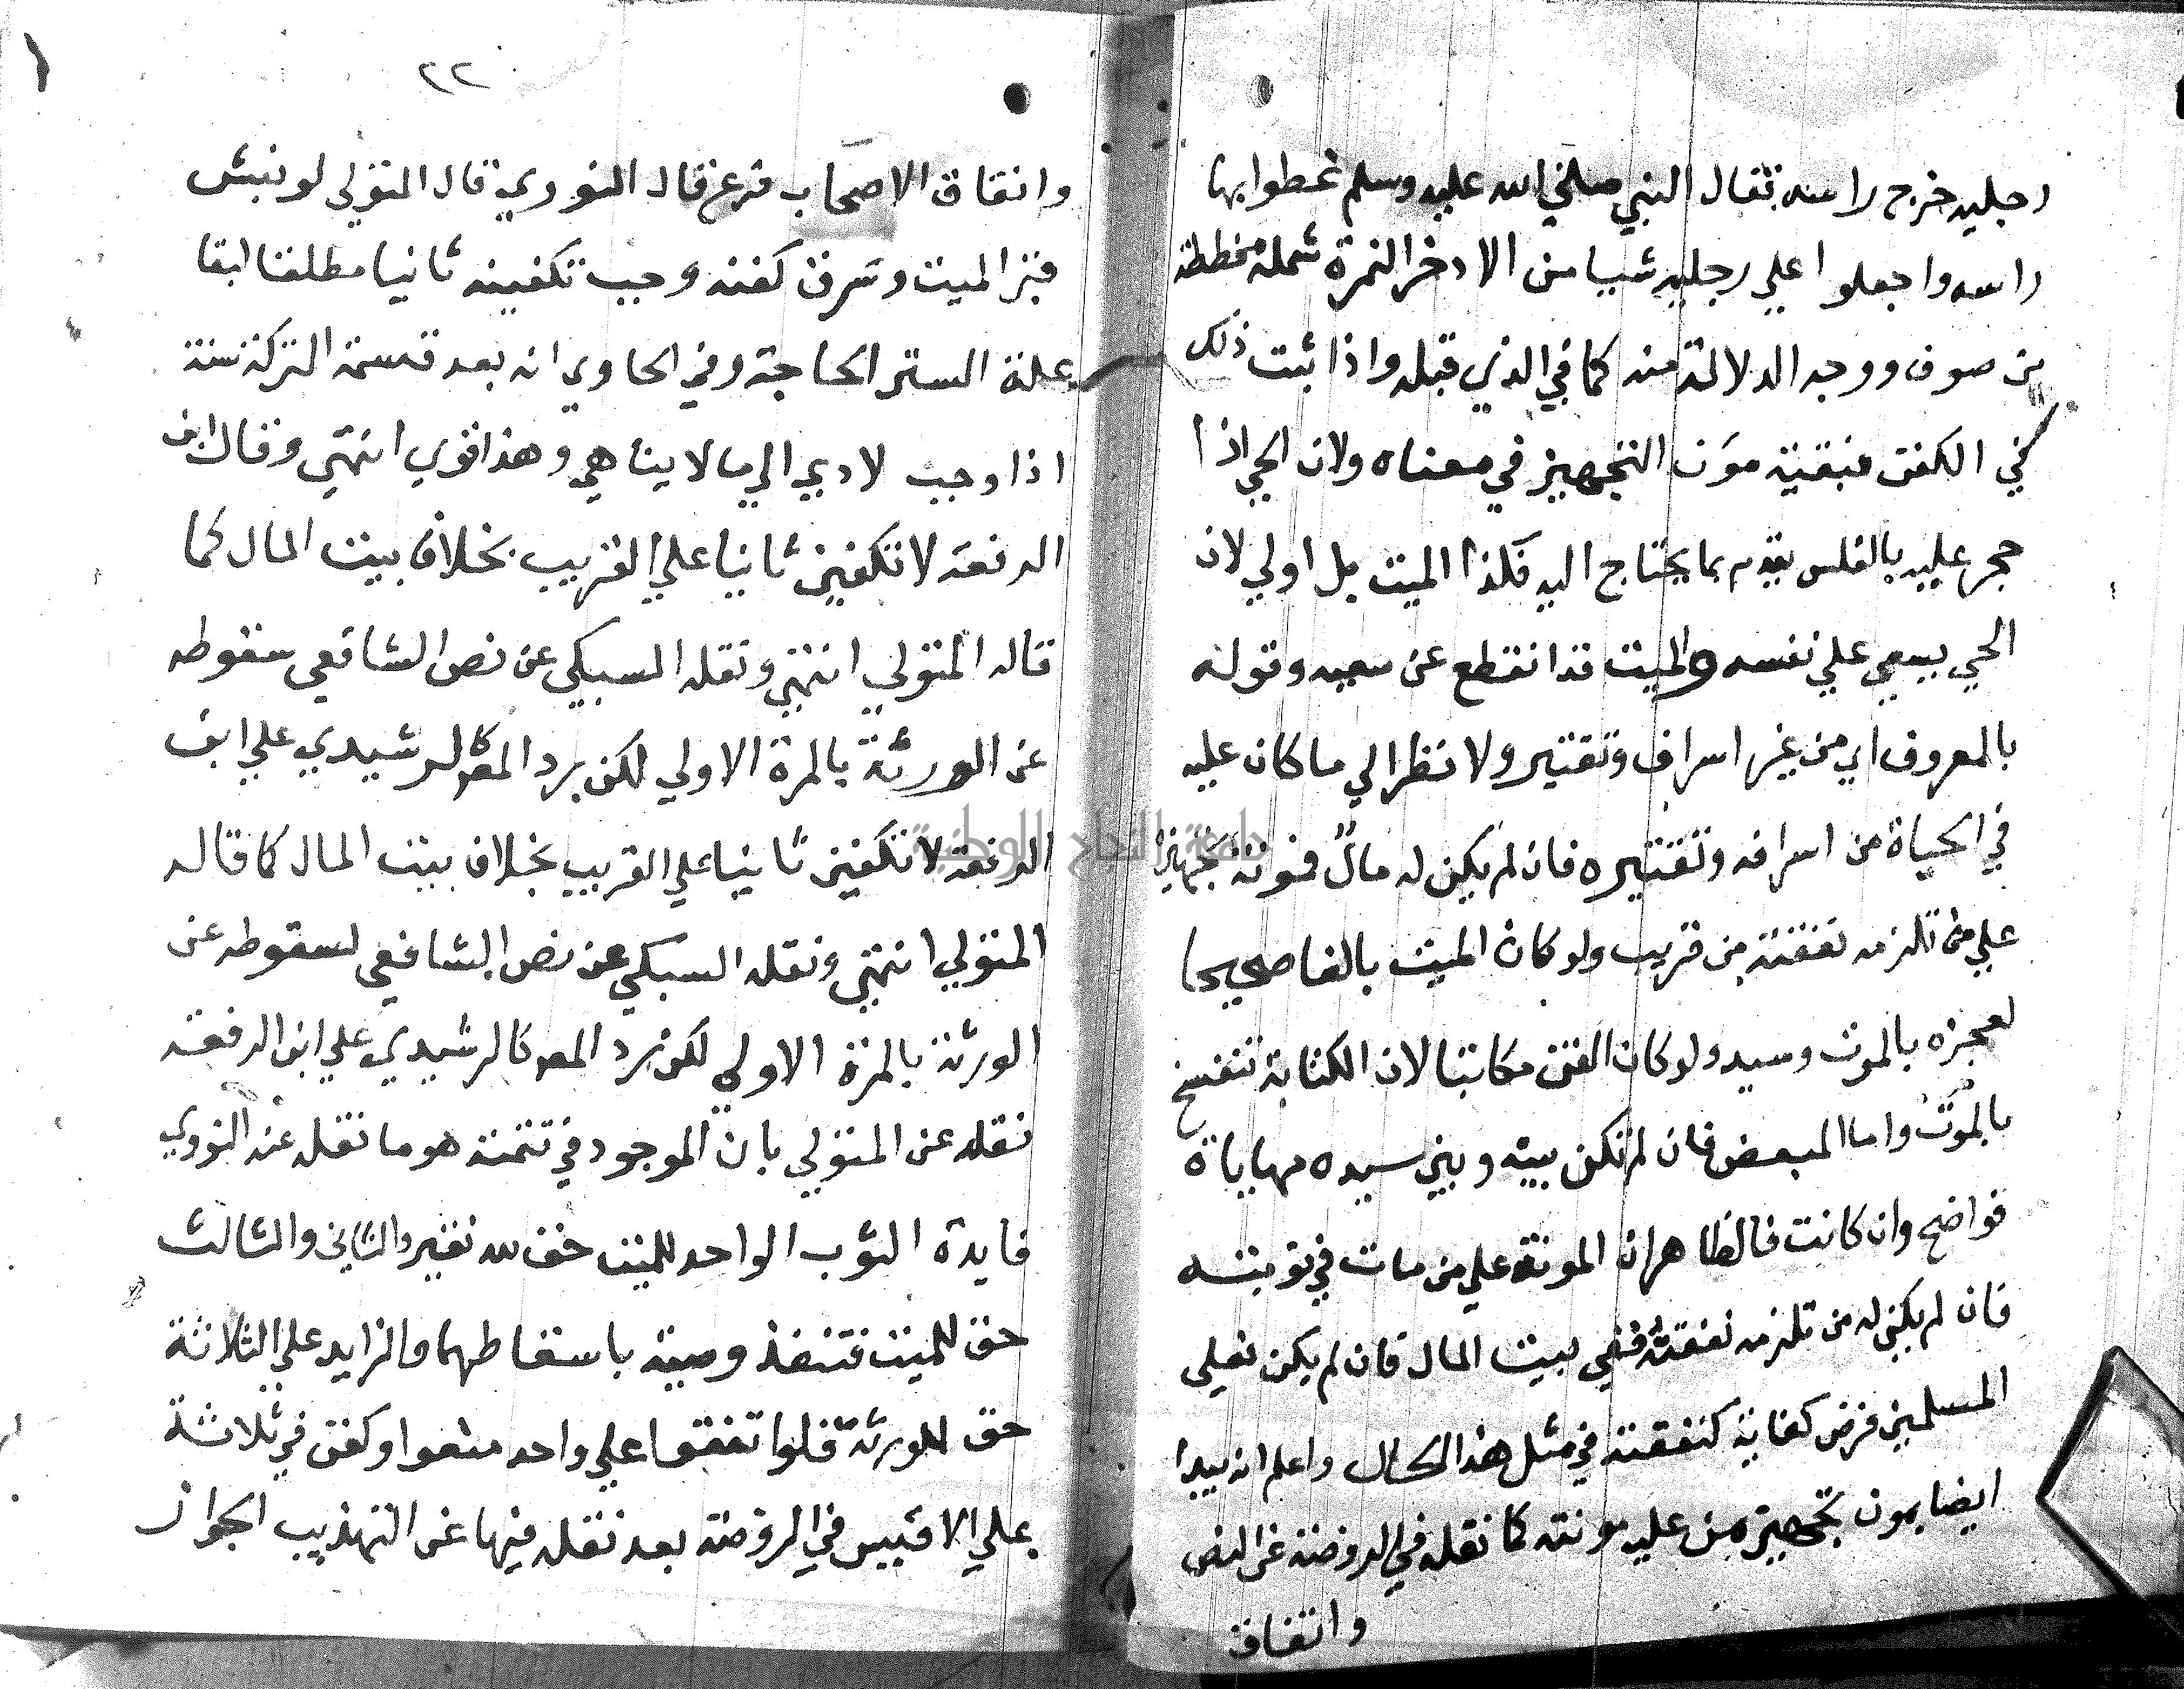 رجليه خرج راسه فقال النبي صلي الله عليه وسلم غطوا بها
راسه واجعلوا علي رجليه شيا من الاذخر النمرة شملة مخططة
من صوف ووجه الدلالة منه كما في الذي قبله واذا ثبت ذلك
في الكفن فبقية مؤن التجهيز في معناه ولان الحي اذا
حجر عليه بالفلس يقدم بما يحتاج اليه فكذا الميت بل اولي لان
الحي يسعي علي نفسه والميت قد انقطع عن سعيه وقوله
بالمعروف اي من غير اسراف وتقتير ولا نظر الي ما كان عليه
في الحياة من اسرافه وتقتيره فان لم يكن له مال فمونة تجهيزه
علي من تلزمه نفقته من قريب ولو كان الميت بالغا صحيحا
لعجزه بالموت وسيد ولو كان القن مكاتبا لان الكتابة تنفسخ
بالموت واما المبعض فان لم تكن بينه وبين سيده مهاياة
فواضح وان كانت فالظاهر ان المونة علي من مات في نوبته
فان لم يكن له من تلزمه نفقته ففي بيت المال فان لم يكن فعلي
المسلمين فرض كفاية كنفقته في مثل هذا الحال واعلم انه يبدا
ايضا بمون تجهيز من عليه مونته كما نقله في الروضة عن النص
واتفاق
٢٢
واتفاق الاصحاب فرع قال النووي قال المتولي لو نبش
قبر الميت وسرق كفنه وجب تكفينه ثانيا مطلقا لبقا
علة الستر الحاجة وفي الحاوي انه بعد قسمة التركة سنة
اذا وجب لادي الي ما لا يتناهي وهذا قوي انتهي وقال ابن
الرفعة لا تكفين ثانيا علي القريب بخلاف بيت المال كما
قاله المتولي انتهي ونقله السبكي عن نص الشافعي سقوطه
عن الورثة بالمرة الاولي لكن يرد الرشيدي علي ابن
الرفعة لا تكفين ثانيا علي القريب بخلاف بيت المال كما قاله
المتولي انتهي ونقله السبكي عن نص الشافعي لسقوطه عن
الورثة بالمرة الاولي لكن يرد الرشيدي علي ابن الرفعة
نقله عن المتولي بان الموجود في تتمته هو ما نقله عنه النووي
فايدة الثوب الواحد للميت حق لله تعالي والثاني والثالث
حق للميت فتنفذ وصيته باسقاطهما والزايد علي الثلاثة
حق للورثة فلو اتفقوا علي واحد منعوا وكفن في ثلاثة
علي الاقيس في الروضة بعد نقله فيها عن التهذيب الجواز
جامعة النجاح الوطنية